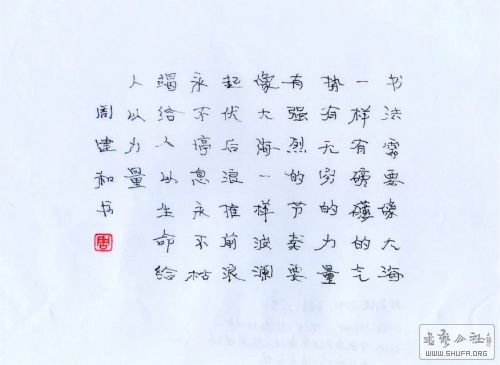 书法需要像大海
一样有磅礴的气
势有无穷的力量
有强烈的节奏要
像大海一样波澜
起伏后浪推前浪
永不停息永不枯
竭给人以生命给
人以力量
周建和书
周
书艺公社
WWW.SHUFA.ORG